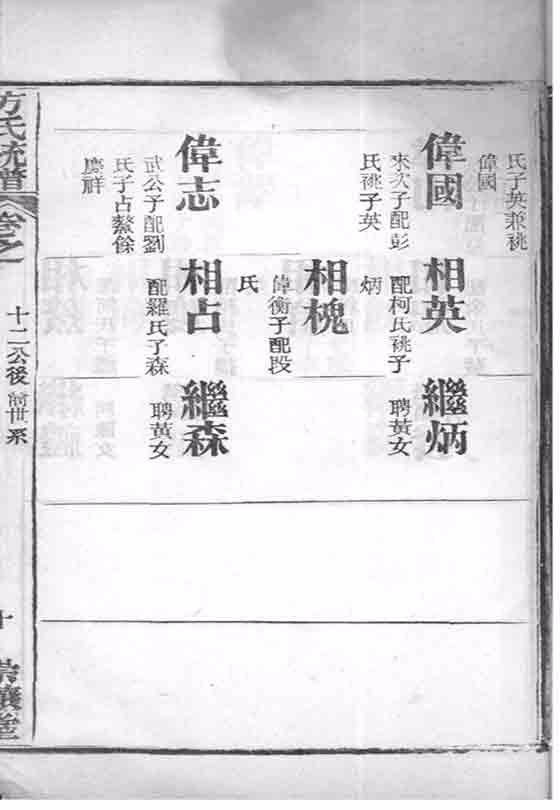 氏子英兼祧
偉國
偉國
來次子配彭
氏祧子英
相英
配柯氏祧子
炳
繼炳
聘黃女
相槐
偉衡子配段
氏
偉志
武公子配劉
氏子占鰲餘
應祥
相占
配羅氏子森
繼森
聘黃女
方氏統譜
卷之一
十二公後 世系
十
堂